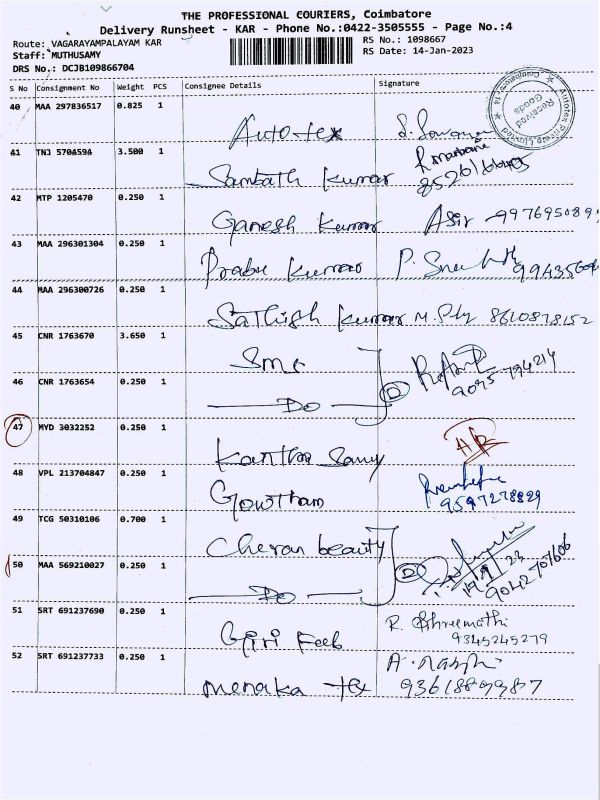 THE PROFESSIONAL COURIERS, Coimbatore
Delivery Runsheet - KAR - Phone No.:0422-3505555 - Page No.:4
Route: VAGARAYAMPALAYAM KAR
RS No.: 1098667
Staff: MUTHUSAMY
RS Date: 14-Jan-2023
DRS No.: DCJB109866704
S No Consignment No Weight PCS Consignee Details Signature
40 MAA 297836517 0.825 1
Autotex
Autotex Private Limited
Received Goods
41 TNJ 5704594 3.500 1
Sambath Kumar
42 MTP 1205470 0.250 1
Ganesh Kumar Asir -997695089
43 MAA 296301304 0.250 1
Prabu Kumar P.
44 MAA 296300726 0.250 1
Sathish Kumar 8610878152
45 CNR 1763670 3.650 1
Sms
46 CNR 1763654 0.250 1
Do D 9095794214
47 MYD 3032252 0.250 1
Kantha Samy
48 VPL 213704847 0.250 1
Gowtham 9597278829
49 TCG 50310106 0.700 1
Cheran beauty
50 MAA 569210027 0.250 1
Do D 14/1/23 9042707606
51 SRT 691237690 0.250 1
Giri R. 9345245279
52 SRT 691237733 0.250 1
Menaka tex A.